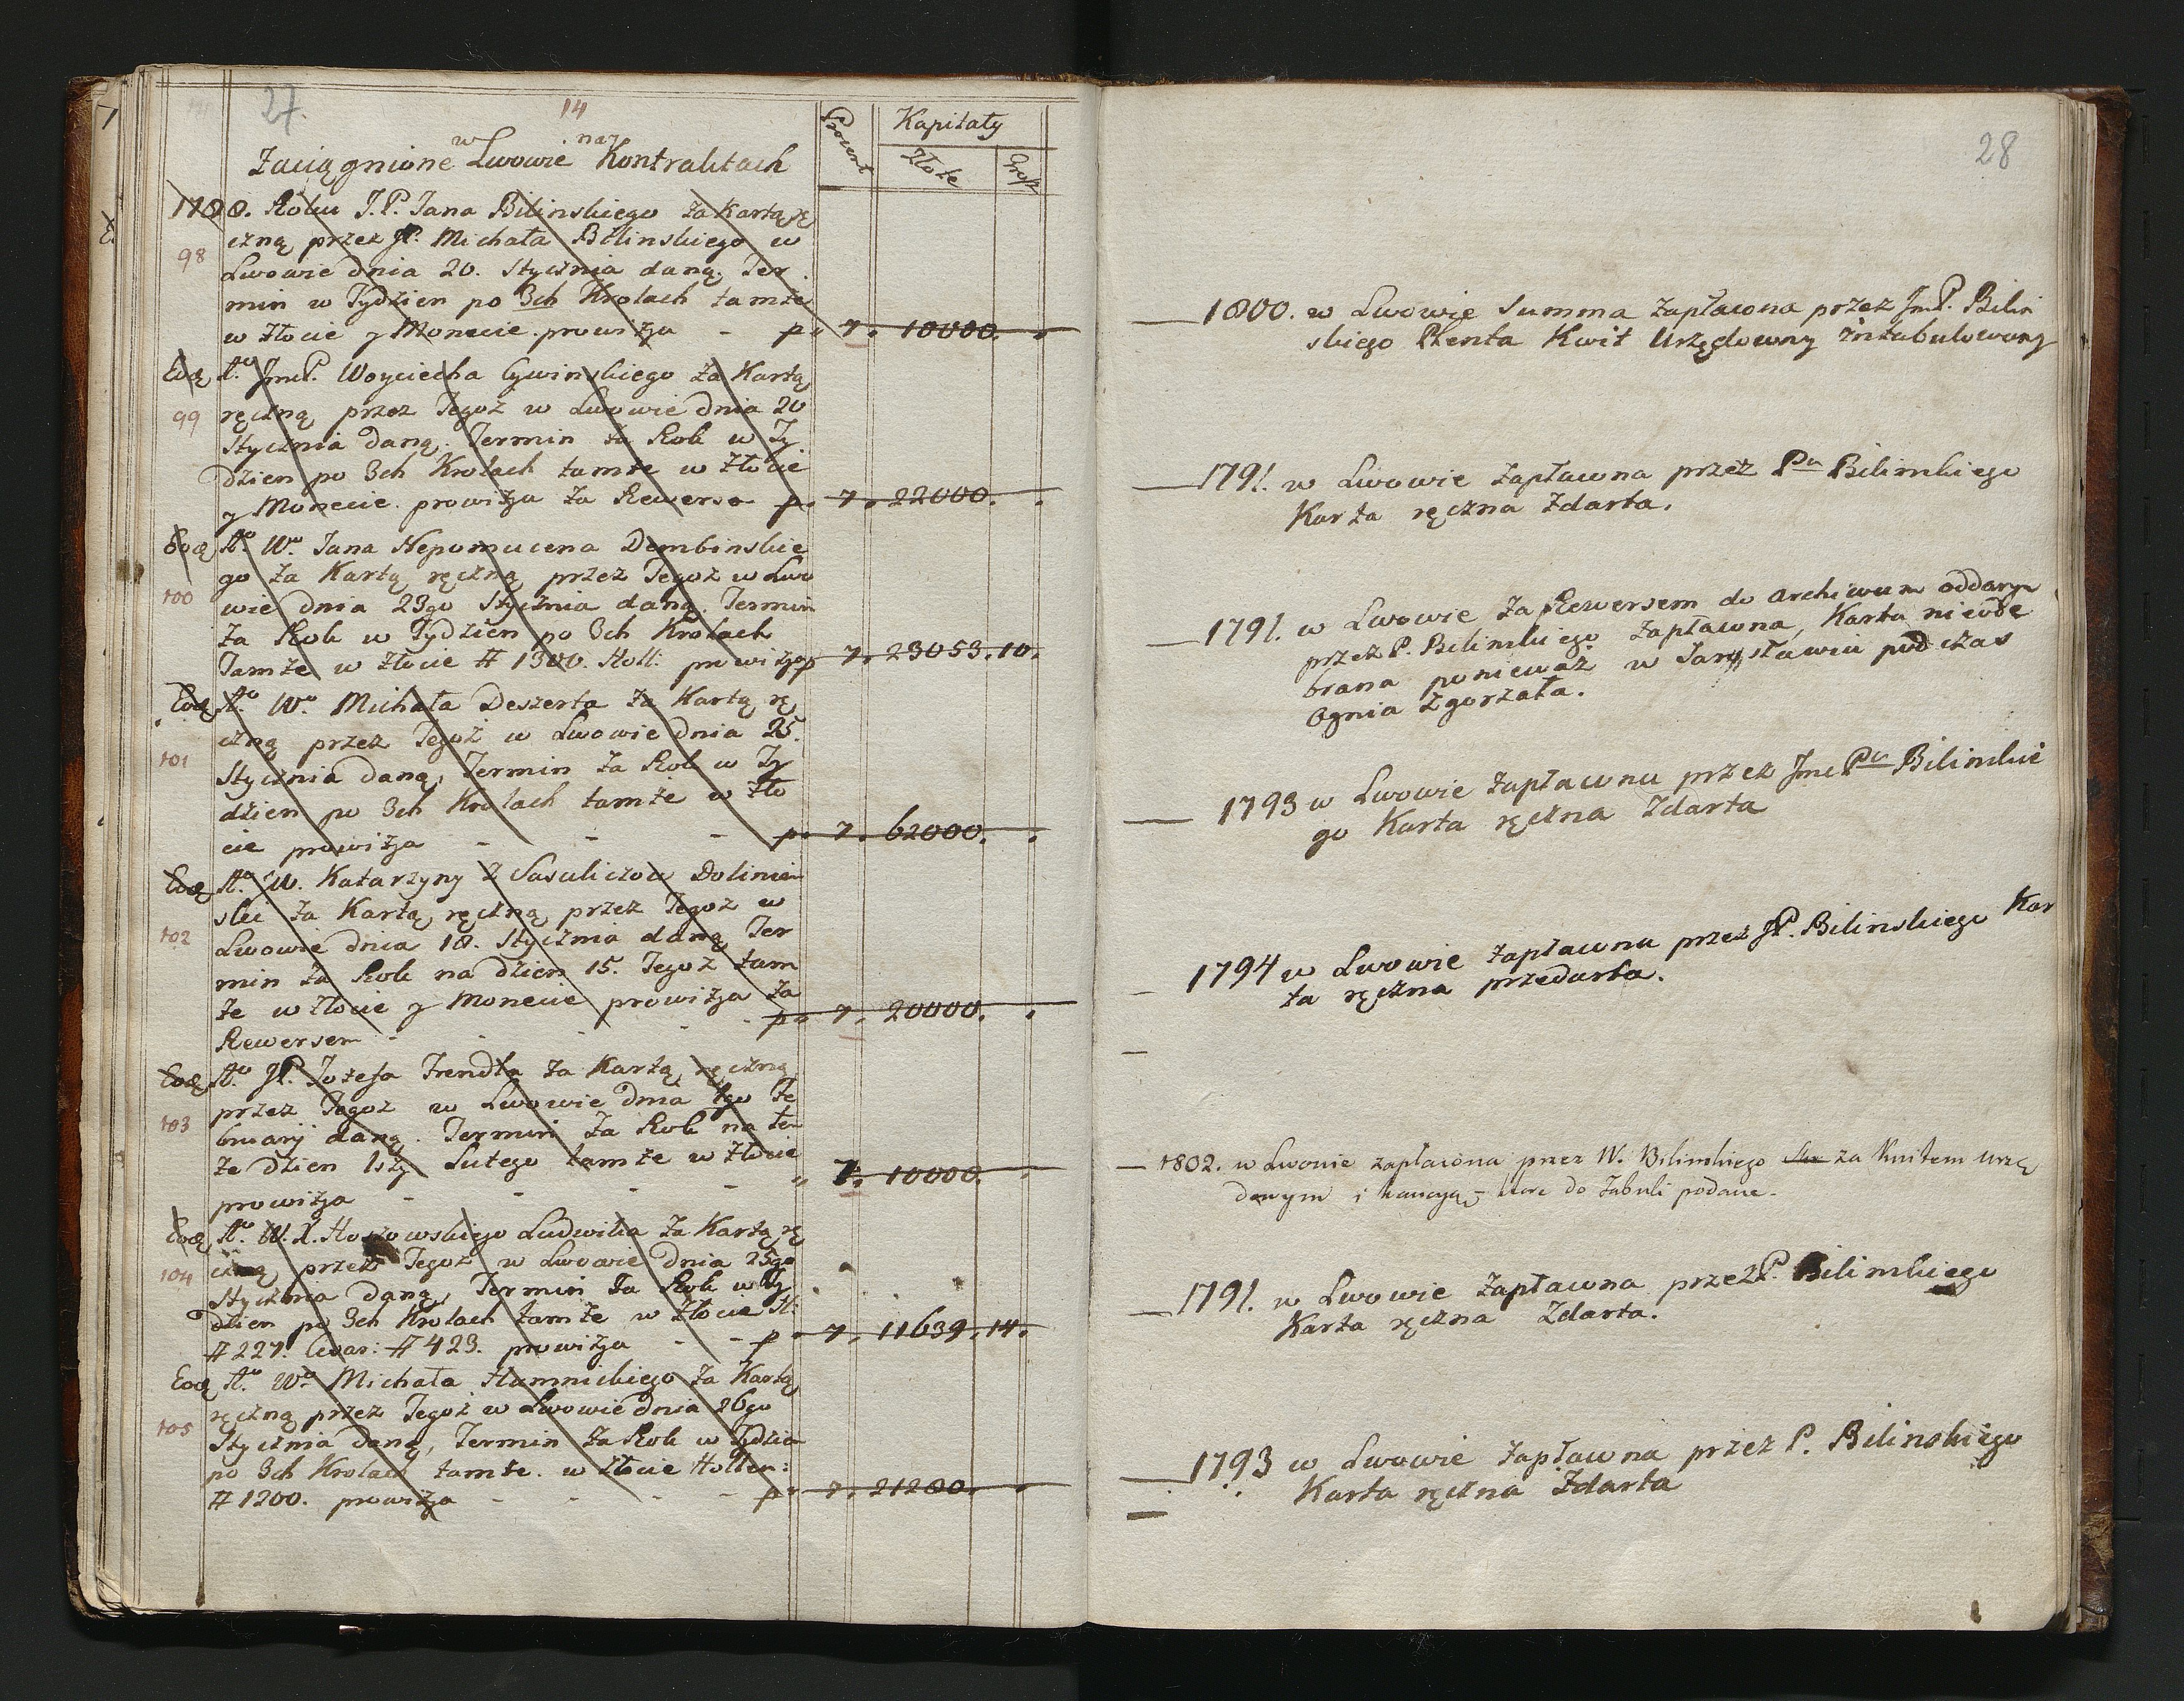 27.
14
w na
Zaciągnione Lwowie Kontraktach
Prowent
Kapitały
Złote
Grosz
1788. Roku J.P. Jana Bilinskiego za Kartą rę
czną przez JP. Michała Bilinskiego w
98
Lwowie dnia 20. Stycznia daną. Ter
min w Tydzien po 3ch Krolach tamże
w złocie y Monecie. prowizya - p. 7. 10000.
Eoq Ao. JmcP. Woyciecha Cywinskiego za Kartą
99
ręczną przez Tegoż w Lwowie dnia 20
Stycznia daną. Termin za Rok w Ty
dzien po 3ch Krolach tamże w złocie
y Monecie. prowizya za Rewerse p. 7. 22000.
Eoq Ao. Wo. Jana Nepomucena Dembinskie
go za Kartą ręczną przez Tegoż w Lwo
100
wie dnia 23go Stycznia daną. Termin
za Rok w Tydzien po 3ch Krolach
Tamże w złocie # 1300. Holl: prowizya p 7. 23053. 10.
Eoq Ao. Wo. Michała Deszerta za Kartą rę
czną przez Tegoż w Lwowie dnia 25.
101
Stycznia daną, Termin za Rok w Ty
dzien po 3ch Krolach tamże w zło
cie prowizya - - - p. 7. 62000.
Eoq Ao. W. Katarzyny Z Sasuliczow Dolinian
skei za Kartą ręczną przez Tegoż w
102
Lwowie dnia 18. Stycznia daną Ter
min za Rok na dzien 15. Tegoż tam
że w złocie y Monecie prowizya za
Rewersem - - - p. 7. 20000.
Eoq Ao. JP. Jozefa Trendla za Kartą ręczną
przez Tegoż w Lwowie dnia 1go Fe
103
bruarij daną. Termin za Rok na ten
że dzien 1szy Lutego tamże w złocie
prowizya - - - - " 7. 10000.
Eoq Ao. W. X. Hoszowskiego Ludwika za Kartą rę
czną przez Tegoż w Lwowie dnia 25go
104
Stycznia daną, Termin za Rok w Ty
dzien po 3ch Krolach tamże w złocie H:
# 227. Cesar: # 423. prowizya - - p. 7. 11639. 14.
Eoq Ao. Wo. Michała Humnickiego za Kartą
ręczną przez Tegoż w Lwowie dnia 26go
105
Stycznia daną, Termin za Rok w Tydzien
po 3ch Krolach tamże. w złocie Hollen:
# 1200. prowizya - - - - p. 7. 21200.
28
1800. w Lwowie Summa zapłacona przez JmP. Bilin
skiego Plenta Kwit Urzędowny Intabulowany
1791. w Lwowie zapłacona przez Pa Bilinskiego
Karta ręczna Zdarta.
1791. w Lwowie za Rewersem do Archiwum oddanym
przez P. Bilinskiego zapłacona, Karta nieode
brana ponieważ w Jarosławiu podczas
Ognia zgorzała.
1793 w Lwowie zapłacona przez JmcPa Bilinskie
go Karta ręczna Zdarta
1794 w Lwowie zapłacona przez JP. Bilinskiego Kar
ta ręczna przedarta.
1802. w Lwowie zapłacona przez W. Bilinskiego za Kwitem urzę
downym i kaucyą - do Tabuli podane.
1791. w Lwowie zapłacona przez P. Bilinskiego
Karta ręczna Zdarta.
1793 w Lwowie zapłacona przez P. Bilinskiego
Karta ręczna Zdarta